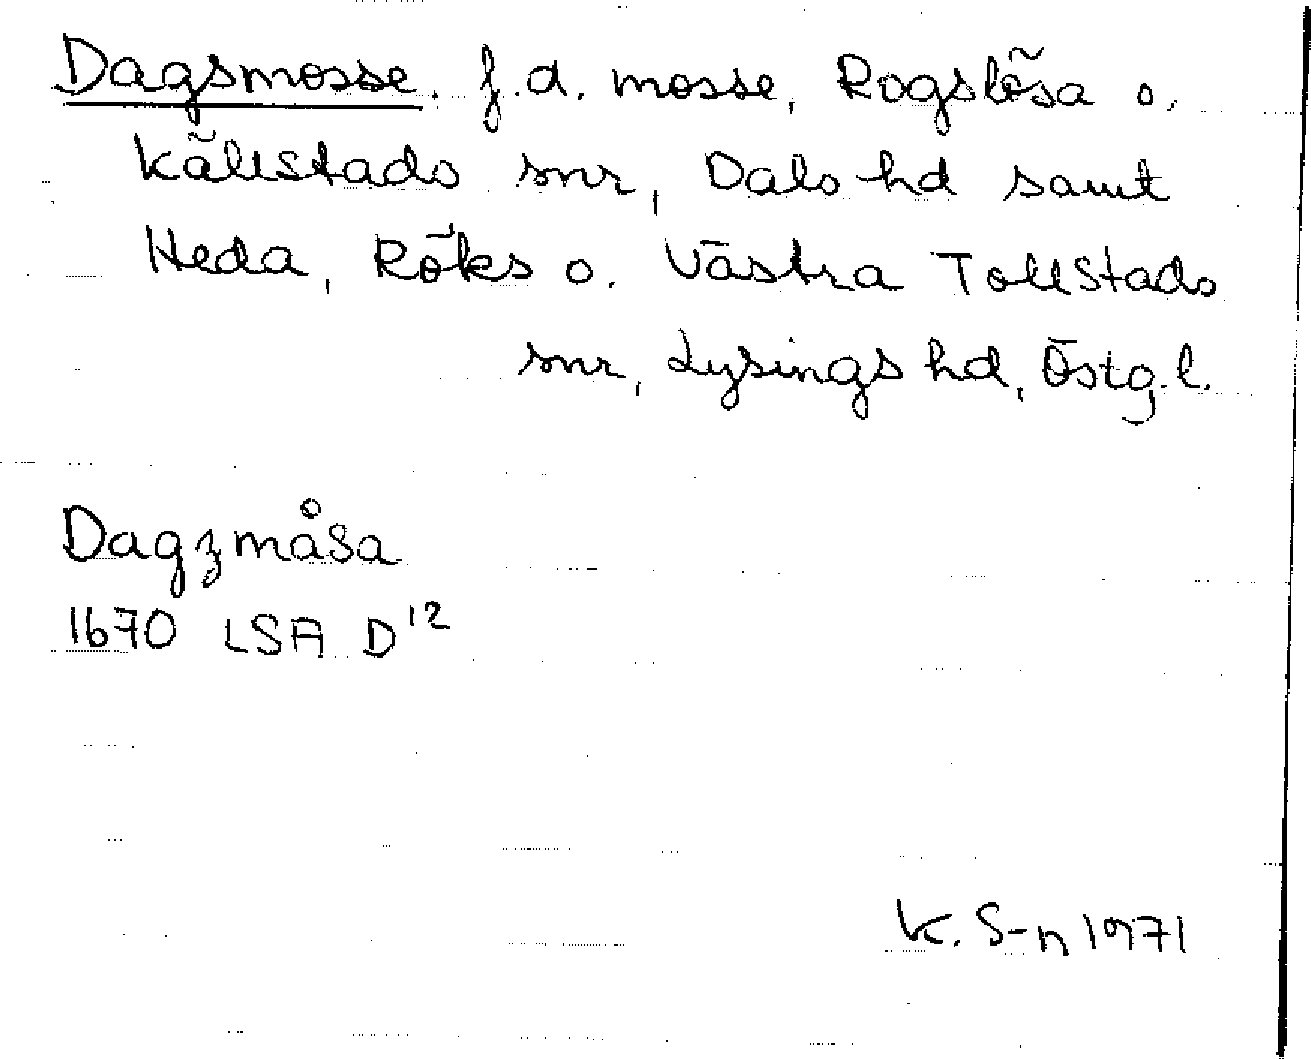 Dagsmosse. f.d. mosse, Rogslösa o.
Källstads snr, Dals hd samt
Heda, Röks o. Västra Tollstads
snr, Lysings hd, Östg. l.
Dagzmåsa
1670 LSA D¹²
K. S-n 1971